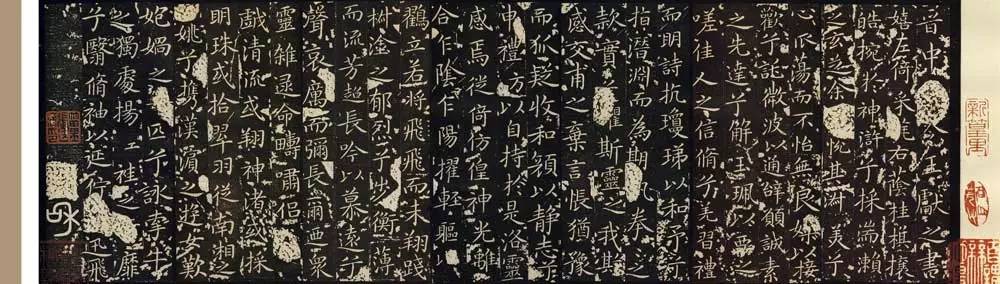 晉中令王獻之書
嬉左倚采旄右蔭桂旗攘
皓捥於神滸兮採湍瀨
之玄芝余悅其淑美兮
心振蕩而不怡無良媒以接
歡兮託微波以通辭願誠素
之先達兮解玉珮以要之
嗟佳人之信脩兮羌習禮
而明詩抗瓊珶以和予兮
指潛淵而為期執拳之
款實懼斯靈之我欺
感交甫之棄言悵猶豫
而狐疑收和顏以静志兮
申禮防以自持於是洛靈
感焉徙倚彷徨神光離
合乍陰乍陽擢輕軀以
鸛立若將飛飛而未翔踐
椒塗之郁烈兮步蘅薄
而流芳超長吟以慕遠兮
聲哀厲而彌長爾迺眾
靈雜遝命疇嘯侶
戲清流或翔神渚或採
明珠或拾翠羽從南湘之
姚兮攜漢濱之遊女歎
妃媧之匹兮詠牽牛
之獨處揚袿之靡
兮翳脩袖以延佇迅飛